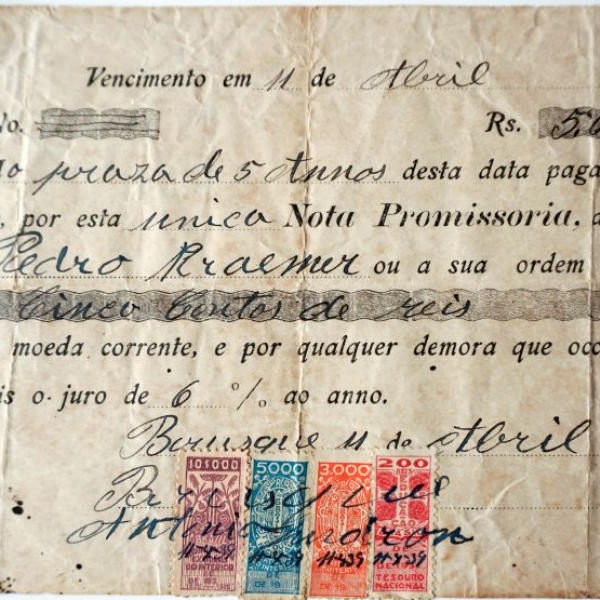 Vencimento em 11 de Abril
No. Rs. 5.0
o praza de 5 Annos desta data paga
, por esta unica Nota Promissoria,
Pedro Kraemer ou a sua ordem
Cinco Contos de reis
moeda corrente, e por qualquer demora que occ
is o juro de 6 % ao anno.
Brusque 11 de Abril
Brusque
Antonio
10$000 5.000 3.000 200
REIS
11-4-39 11-4-39 11-4-39 11-4-39
TESOURO
NACIONAL